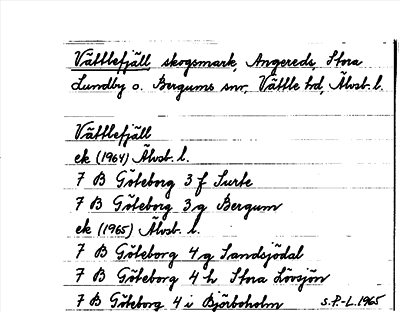 Vättlefjäll skogsmark, Angereds, Stora
Lundby o. Bergums snr, Vättle hd, Älvsb. l.
Vättlefjäll
ek (1964) Älvsb. l.
7 B Göteborg 3 f Surte
7 B Göteborg 3 g Bergum
ek (1965) Älvsb. l.
7 B Göteborg 4 g Sandsjödal
7 B Göteborg 4 h Stora Lövsjön
7 B Göteborg 4 i Björboholm s.P.-L. 1965